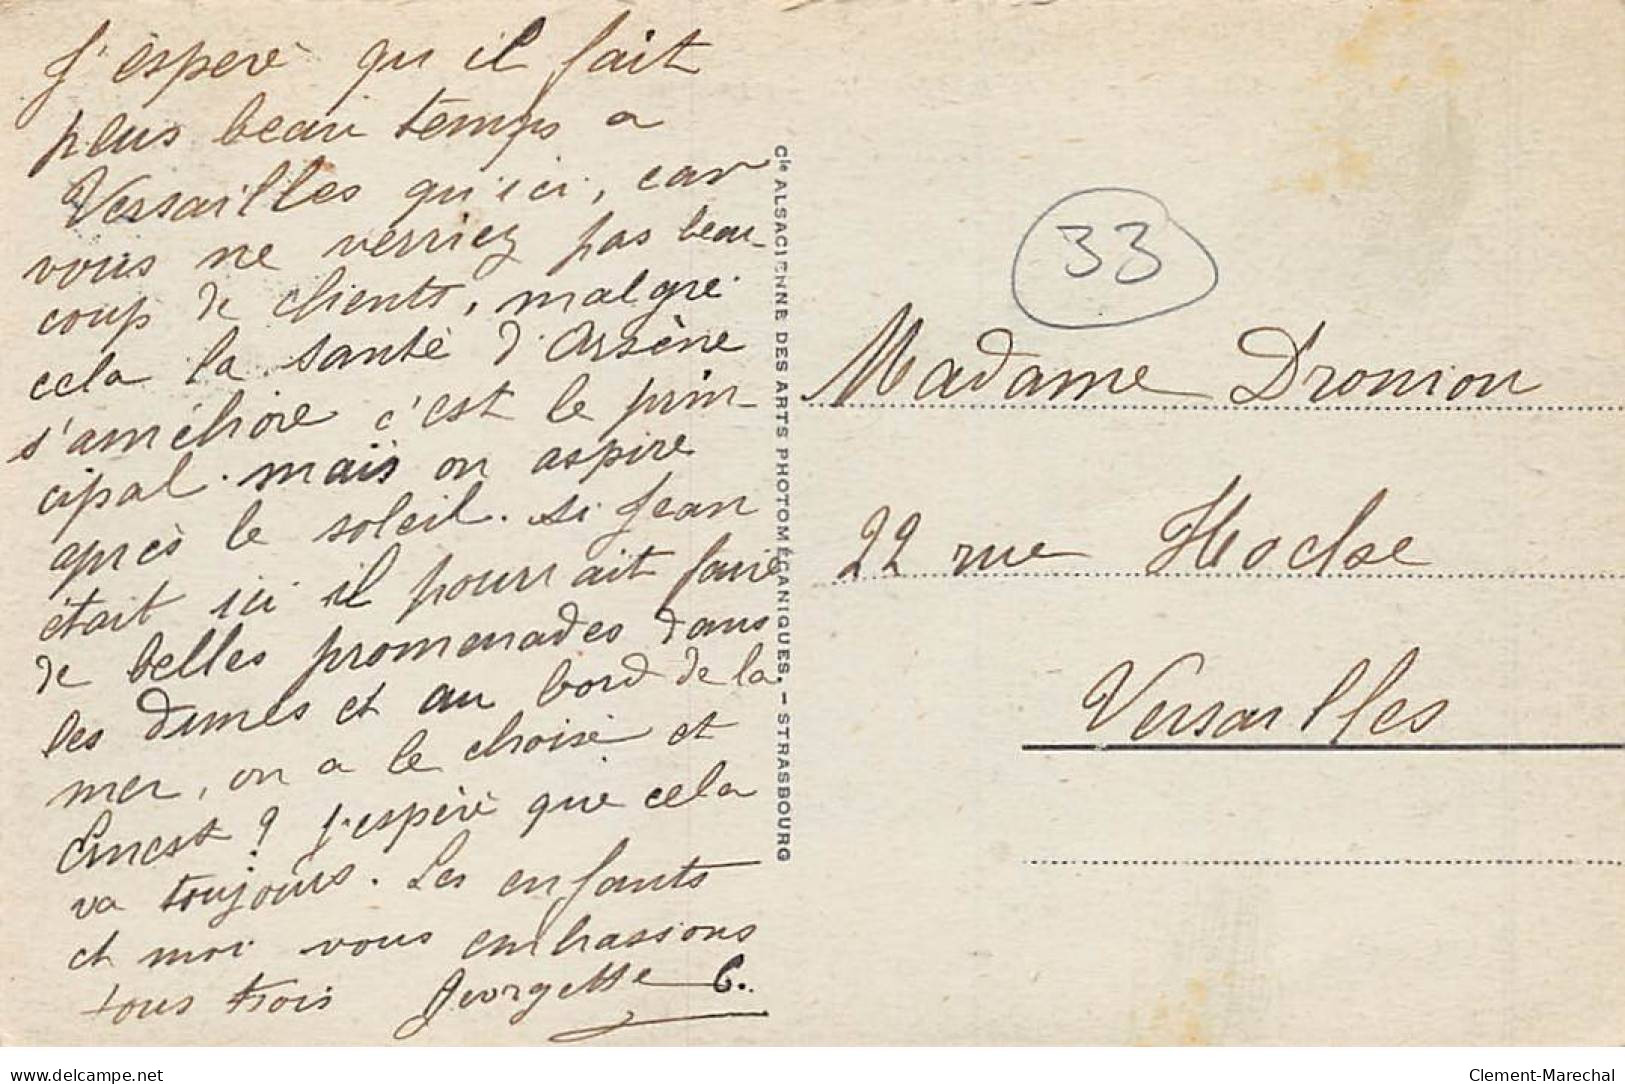 J'éspère qu'il fait
plus beau temps a
Versailles qu'ici, car
vous ne verriez pas beau-
coup de clients, malgré
cela la santé d'Arsène
s'améliore c'est le prin-
cipal. mais on aspire
après le soleil. Si Jean
était ici il pourrait faire
de belles promenades dans
les dunes et au bord de la
mer, on a le choix et
Ernest ? J'espère que cela
va toujours. Les enfants
et moi vous embrassons
tous trois Georgette C.
Cie ALSACIENNE DES ARTS PHOTOMÉCANIQUES. – STRASBOURG
33
Madame Dromion
22 rue Hoche
Versailles
delcampe.net
Clement-Marechal